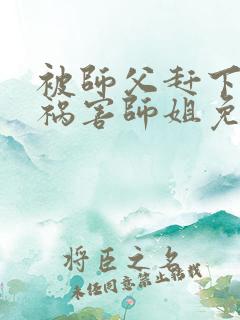 被師父赶下
祸害師姐免
将臣之名
未经同意禁止转载